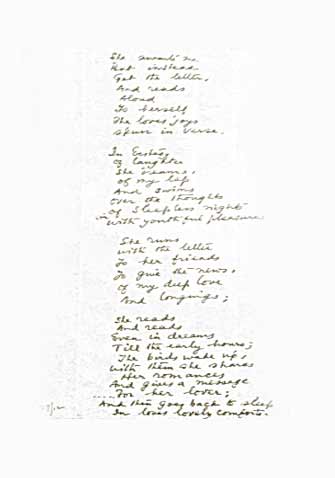 She
But instead
Get the letter,
And reads
Aloud
To herself
The loves joys
spun in verse.
In Ecstasy
Of laughter
She dreams,
Of my lap
And swims
Over the thoughts
Of Sleepless night
with youthful pleasure
She runs
with the letter
To her friends
To give the news,
Of my deep love
And longings;
She reads
And reads
Even in dreams
Till the early hours;
The birds wake up,
with them she shares
Her romances
And gives a message
For her lover;
And then goes back to sleep
In loves lovely comforts.